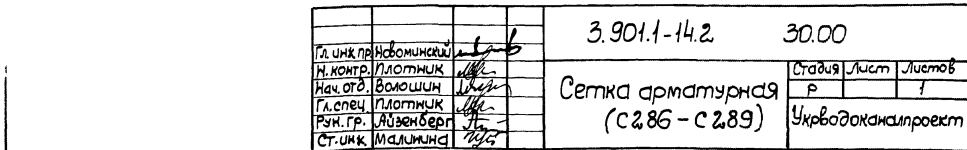 3.901.1-14.2 30.00
Гл. инж. пр. Новоминский
Н. контр. Плотник
Нач. отд. Волошин
Гл. спец Плотник
Рук. гр. Айзенберг
Ст. инж Малинина
Сетка арматурная
(С286 - С289)
Стадия Лист Листов
Р 1
Укрводоканалпроект